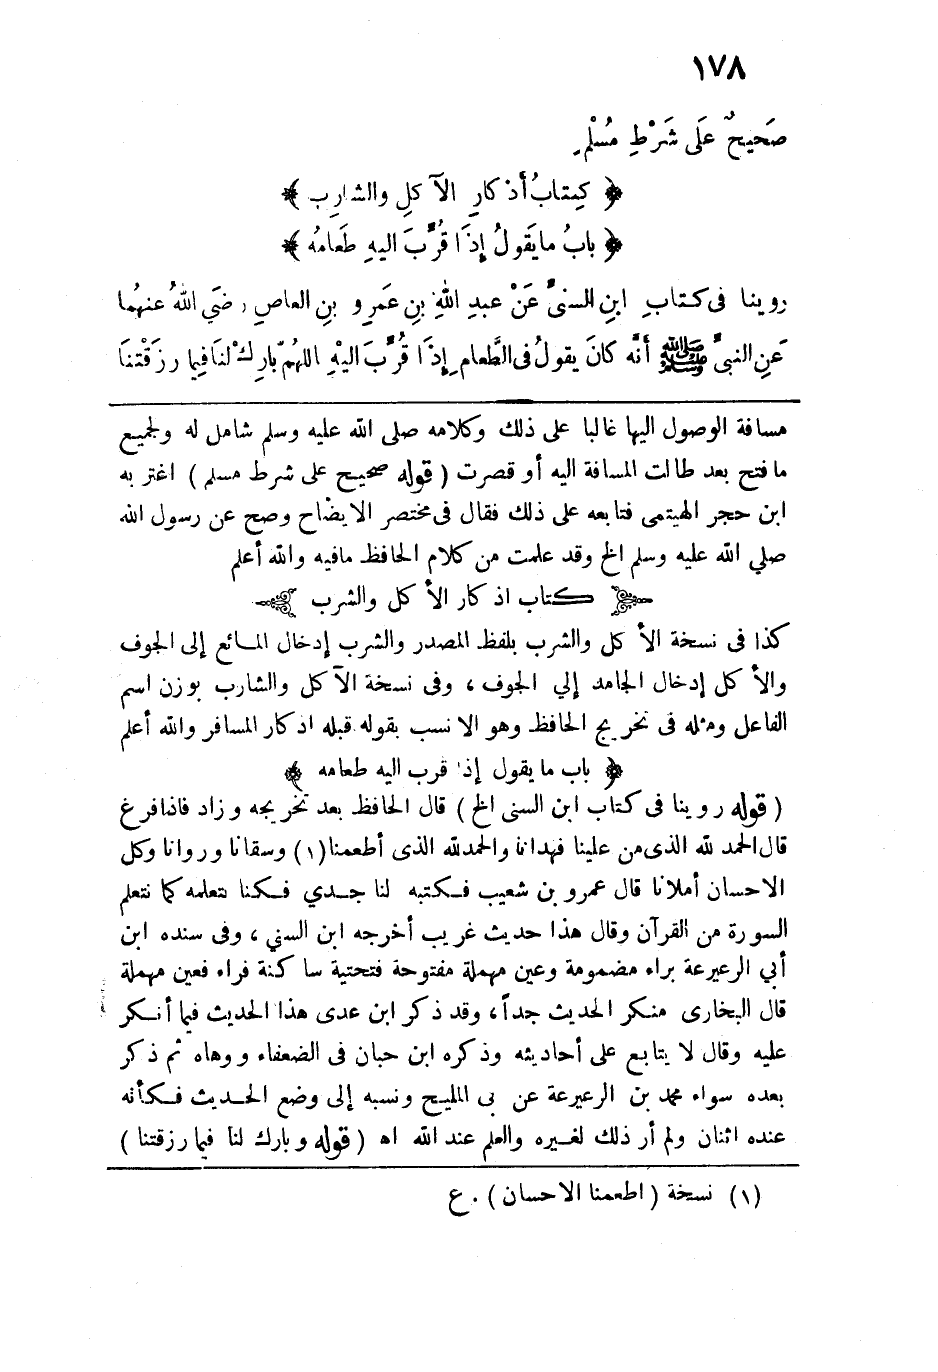 ١٧٨
صَحيحٌ عَلَى شَرْطِ مُسْلمٍ
﴿ كِتابُ أذكارِ الآكلِ والشارِبِ ﴾
﴿ بابُ ما يَقولُ إذَا قُرِّبَ اليهِ طَعامُه ﴾
روينا فى كتابِ ابنِ السنىِّ عَنْ عبدِ اللهِ بنِ عَمرِو بنِ العاصِ رضَي اللهُ عنهُما
عَنِ النبىِّ ﷺ أنَّه كانَ يقولُ فى الطَّعامِ إذَا قُرِّبَ اليْهِ اللهُمّ بارِكْ لنَا فِيما رزَقْتنَا
مسافة الوصول اليها غالبا على ذلك وكلامه صلى الله عليه وسلم شامل له ولجميع
مافتح بعد طالت المسافة اليه أو قصرت ( قوله صحيح على شرط مسلم ) اغتر به
ابن حجر الهيتمى فتابعه على ذلك فقال فى مختصر الايضاح وصح عن رسول الله
صلي الله عليه وسلم الخ وقد علمت من كلام الحافظ مافيه والله أعلم
كتاب اذكار الأكل والشرب
كذا فى نسخة الأكل والشرب بلفظ المصدر والشرب إدخال المائع إلى الجوف
والأكل إدخال الجامد إلي الجوف ، وفى نسخة الآكل والشارب بوزن اسم
الفاعل ومثله فى تخريج الحافظ وهو الانسب بقوله قبله اذكار المسافر والله أعلم
﴿ باب ما يقول إذا قرب اليه طعامه ﴾
( قوله روينا فى كتاب ابن السنى الخ ) قال الحافظ بعد تخريجه وزاد فاذافرغ
قال الحمد لله الذى من علينا فهدانا والحمدلله الذى أطعمنا(١) وسقانا وروانا وكل
الاحسان أملانا قال عمرو بن شعيب فكتبه لنا جدي فكنا نتعلمه كما نتعلم
السورة من القرآن وقال هذا حديث غريب أخرجه ابن السني ، وفى سنده ابن
أبي الرعيرعة براء مضمومة وعين مهملة مفتوحة فتحتية ساكنة فراء فعين مهملة
قال البخارى منكر الحديث جداً ، وقد ذكر ابن عدى هذا الحديث فيما أنكر
عليه وقال لا يتابع على أحاديثه وذكره ابن حبان فى الضعفاء ووهاه ثم ذكر
بعده سواء محمد بن الرعيرعة عن بى المليح ونسبه إلى وضع الحديث فكأنه
عنده اثنان ولم أر ذلك لغيره والعلم عند الله اه ( قوله وبارك لنا فيما رزقتنا )
(١) نسخة ( اطعمنا الاحسان ) . ع